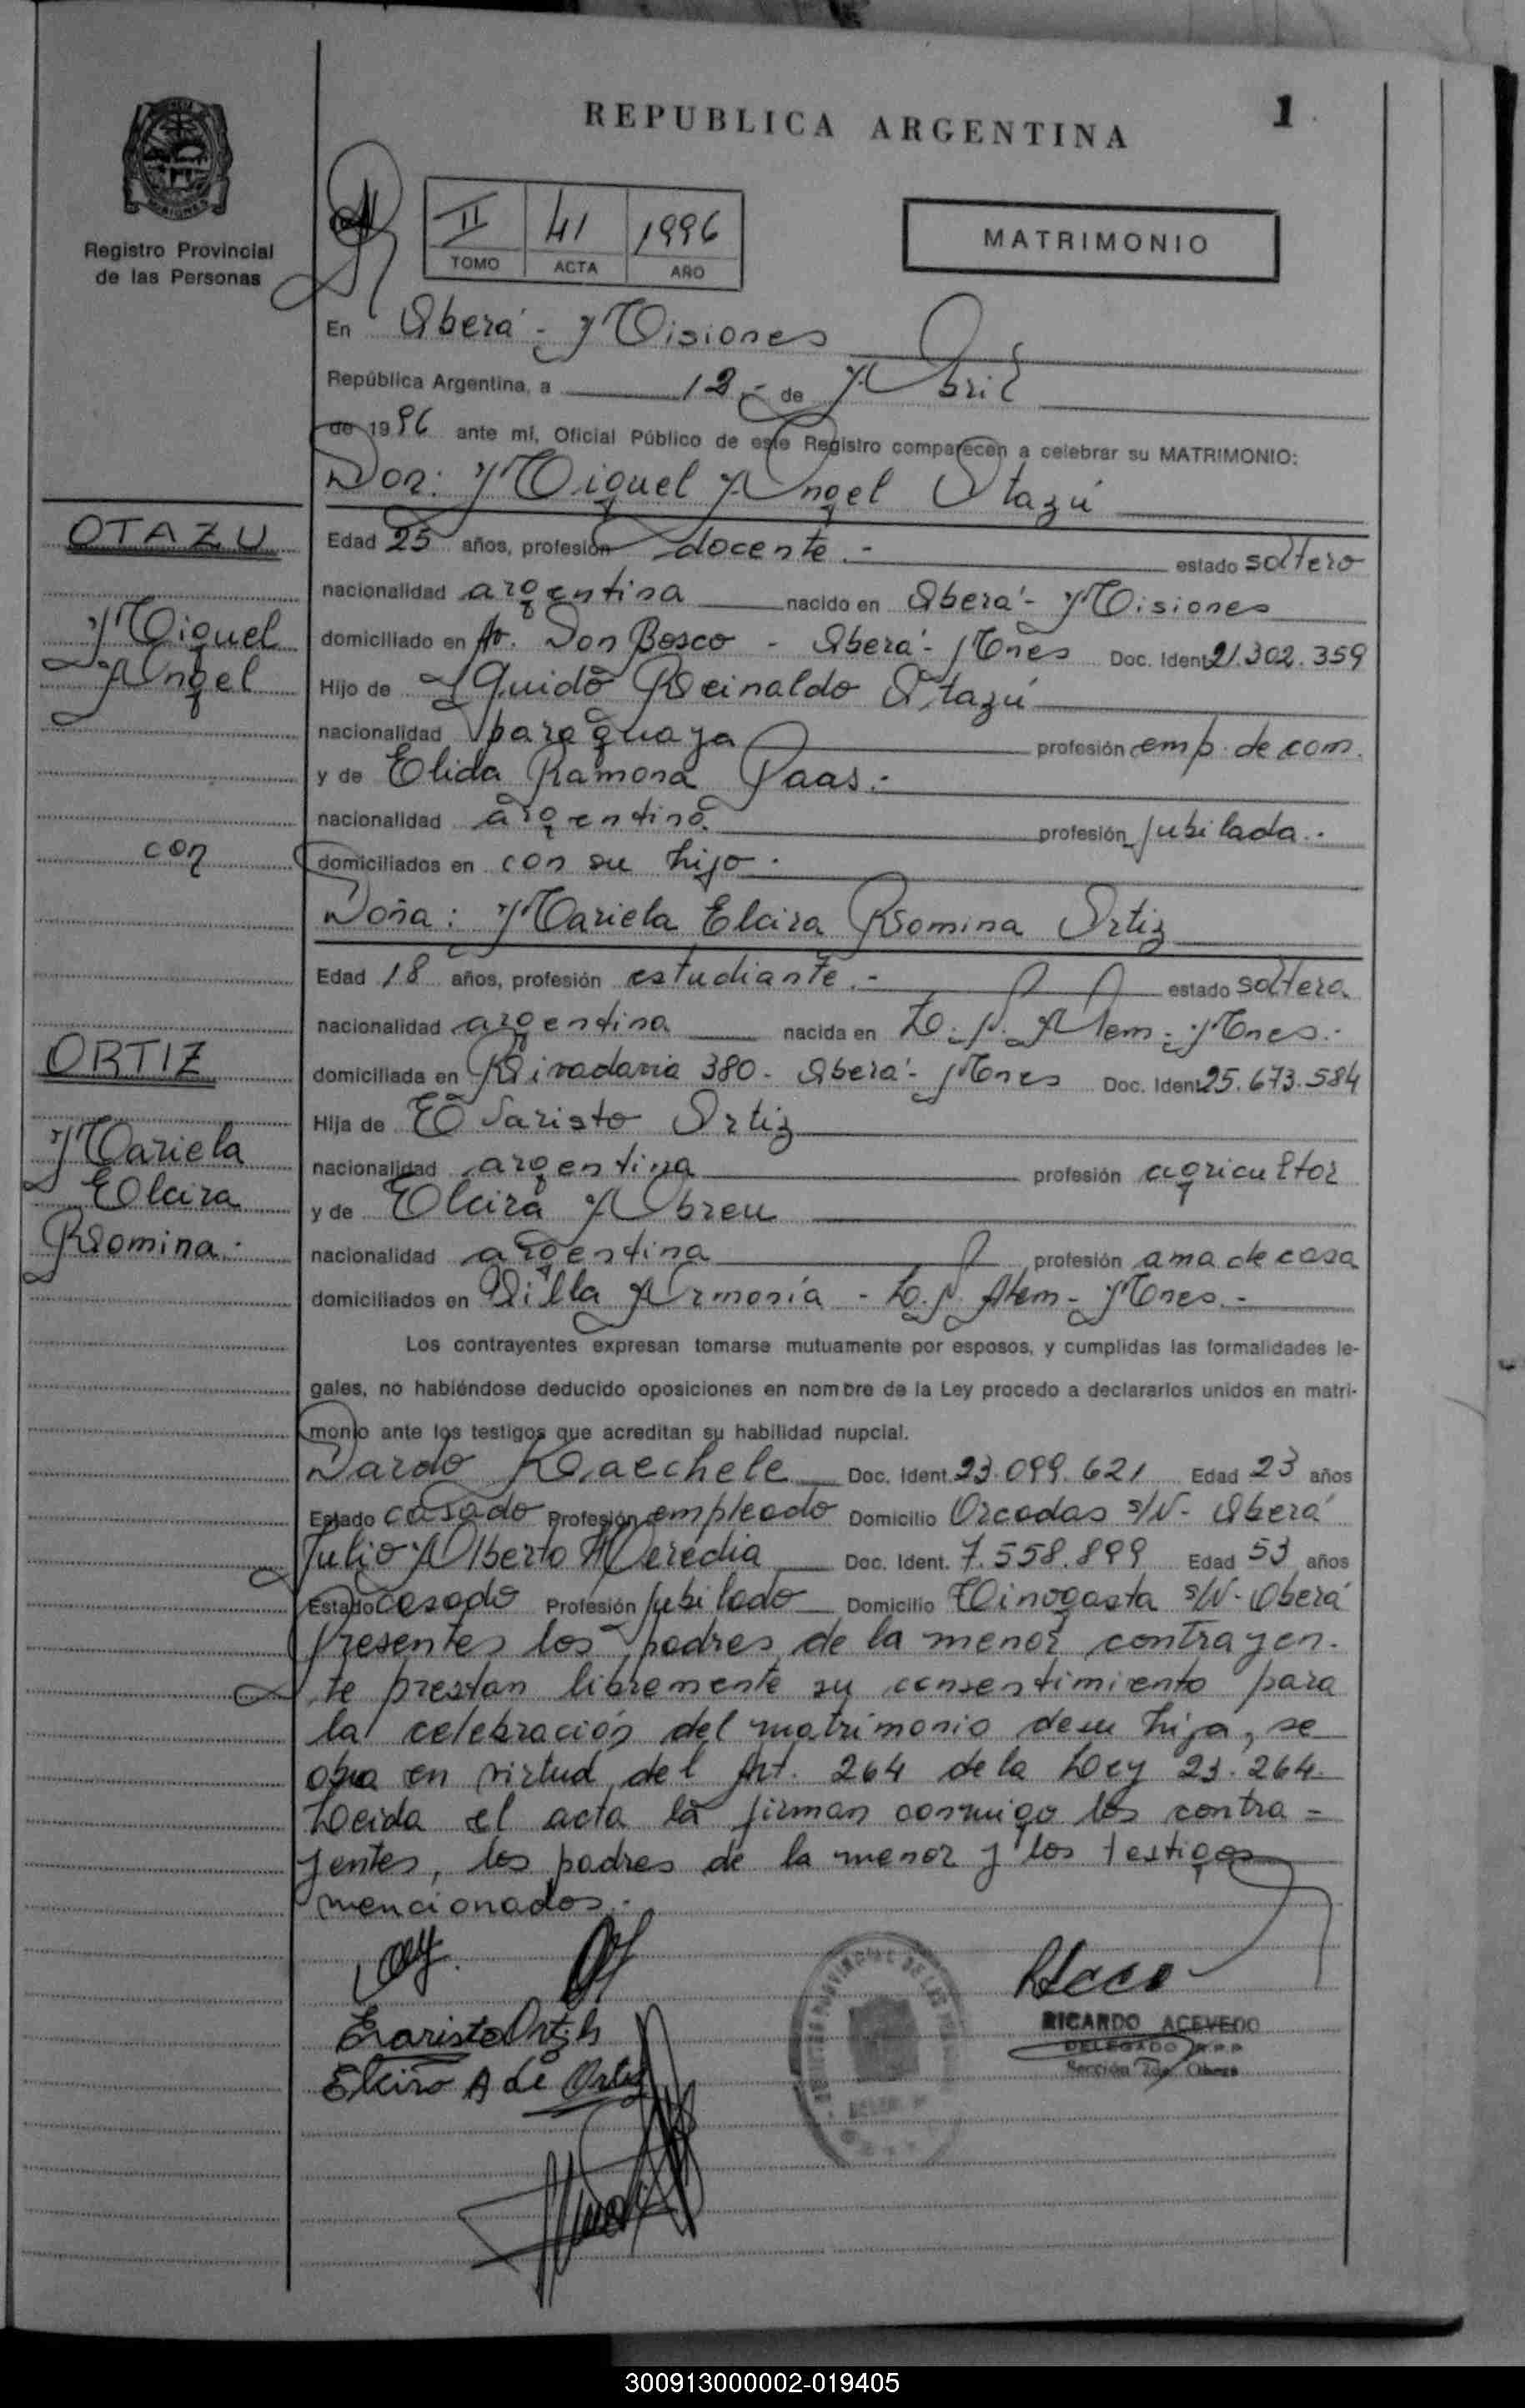 REPUBLICA ARGENTINA
1
Registro Provincial
de las Personas
II 41 1996
TOMO ACTA AÑO
MATRIMONIO
En Oberá - Misiones
República Argentina, a 12 - de Abril
de 1996 ante mí, Oficial Público de este Registro comparecen a celebrar su MATRIMONIO:
Don: Miguel Angel Otazú
OTAZU
Edad 25 años, profesión docente.- estado soltero
nacionalidad argentina nacido en Oberá - Misiones
Miguel
domiciliado en Av. Don Bosco - Oberá - Mnes Doc. Ident 21.302.359
Angel
Hijo de Guido Reinaldo Otazú
nacionalidad paraguaya profesión emp. de com.
y de Elida Ramona Paas.-
nacionalidad argentina profesión jubilada.-
con
domiciliados en con su hijo.
Doña: Mariela Elcira Romina Ortiz
Edad 18 años, profesión estudiante.- estado soltera
nacionalidad argentina nacida en L. N. Alem - Mnes.
ORTIZ
domiciliada en Rivadavia 380 - Oberá - Mnes Doc. Ident 25.673.584
Hija de Evaristo Ortiz
Mariela
nacionalidad argentina profesión agricultor
Elcira
y de Elcira Abreu
Romina.
nacionalidad argentina profesión ama de casa
domiciliados en Villa Armonía - L. N. Alem - Mnes.-
Los contrayentes expresan tomarse mutuamente por esposos, y cumplidas las formalidades le-
gales, no habiéndose deducido oposiciones en nombre de la Ley procedo a declararlos unidos en matri-
monio ante los testigos que acreditan su habilidad nupcial.
Dardo Kaechele Doc. Ident. 23.099.621 Edad 23 años
Estado casado Profesión empleado Domicilio Orcadas s/N - Oberá
Julio Alberto Heredia Doc. Ident. 7.558.899 Edad 53 años
Estado casado Profesión jubilado Domicilio Tinogasta s/N - Oberá
Presentes los padres de la menor contrayen-
te prestan libremente su consentimiento para
la celebración del matrimonio de su hija, se
obra en virtud del Art. 264 de la Ley 23.264.
Leida el acta la firman conmigo los contra-
yentes, los padres de la menor y los testigos
mencionados.-
Evaristo Ortiz
Elcira A de Ortiz
RICARDO ACEVEDO
DELEGADO R.P.P
Sección 2da. Oberá
300913000002-019405